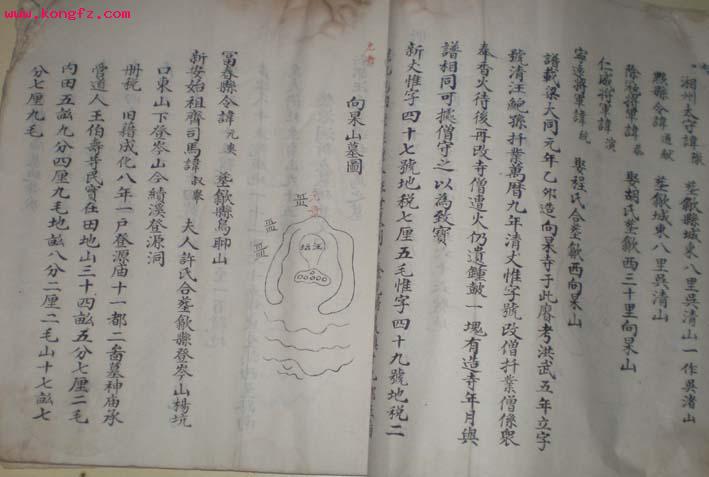 www.kongfz.com
湘州太守諱 葬歙縣城東八里吳清山一作吳渚山
黟縣令諱 葬歙城東八里吳清山
將軍諱 娶胡氏葬歙西三十里向杲山
仁威將軍諱 演
寧遠將軍諱 統 娶程氏合葬歙西向杲山
譜載梁大同元年乙卯造向杲寺于此處考洪武五年立字
號清汪鮑孫扦業萬曆九年清丈惟字號改僧扦業僧像眾
奉香火待後再改寺僧遭火仍遺鍾皷一塊有造寺年月與
譜相同可據僧守之以為致寶
新丈惟字四十七號地稅七厘五毛惟字四十九號地稅二
向杲山墓圖
富春縣令諱 葬歙縣烏聊山
新安始祖齊司馬諱叔舉 夫人許氏合葬歙縣登岑山楊坑
口東山下登岑山今績溪登源洞
册稅 旧籍成化八年一戶登源庙十一都二啚墓神庙承
管道人王伯壽等民實在田地山三十四畝五分七厘二毛
内田五畝九分四厘九毛地畝八分二厘二毛山十七畝七
分七厘九毛